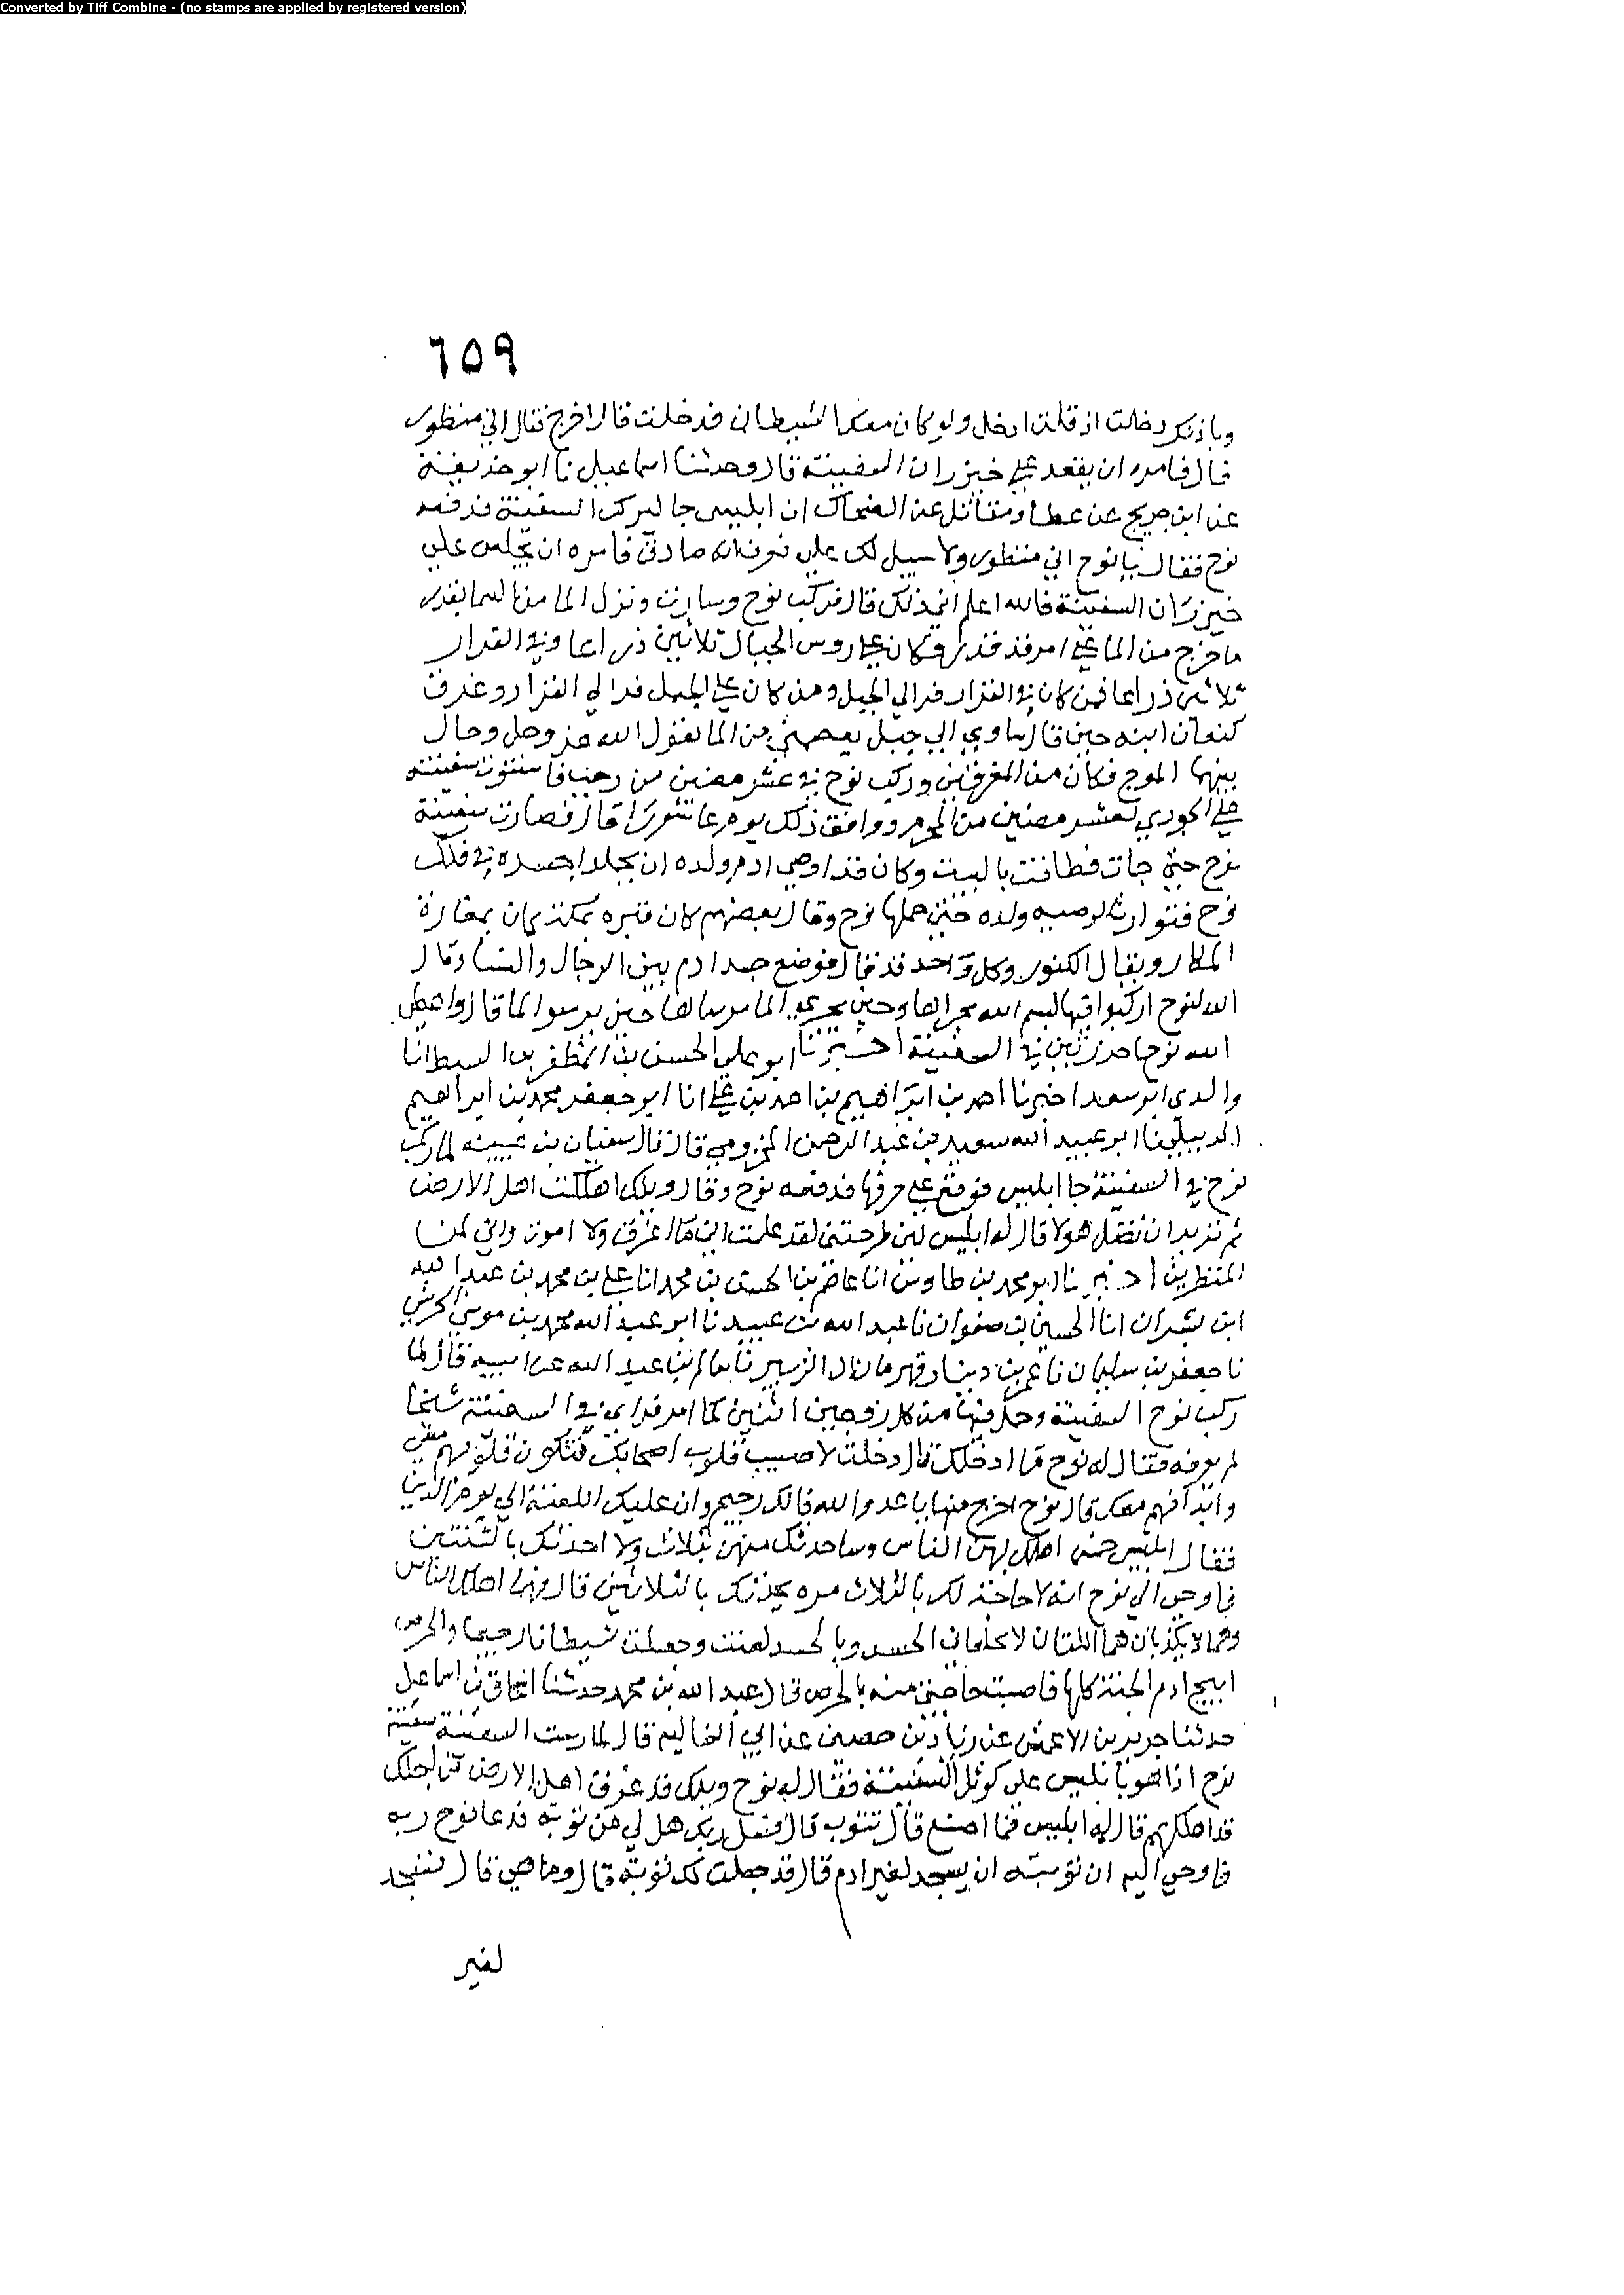 Converted by Tiff Combine - (no stamps are applied by registered version)
٦٥٩
وباذنك دخلت اذ قلت ادخل ولو كان معك الشيطان فدخلت قال اخرج فقال اني منظور
قال فامره ان يقعد على خيزران السفينة قال وحدثنا اسماعيل نا ابو حذيفة
عن ابن جريج عن عطا ومقاتل عن الضحاك ان ابليس جا ليركب السفينة فدفعه
نوح فقال يا نوح اني منظور ولا سبيل لك علي فعرف انه صادق فامره ان يجلس على
خيزران السفينة فالله اعلم اني ذلك قال فركب نوح وسارت ونزل الما من السما بقدر
ما خرج من الما على امر قد قدر وكان على روس الجبال ثلاثين ذراعا وفي القرار
ثلاثين ذراعا فمن كان في القرار فر الي الجبل ومن كان على الجبل فر الي القرار وغرق
كنعان ابنه حين قال ساوي الي جبل يعصمني من الما يقول الله عز وجل وحال
بينهما الموج فكان من المغرقين وركب نوح في عشر مضين من رجب فاستوت سفينته
على الجودي لعشر مضين من المحرم ووافق ذلك يوم عاشورا قال فصارت سفينة
نوح حتى جات فطافت بالبيت وكان قد اوصي ادم ولده ان يحملوا جسده في فلك
نوح فتوارث الوصيه ولده حتى حملها نوح وقال بعضهم كان قبره بمكة كان بمغارة
ويقال الكنوز وكل واحد قد قال فوضع جسد ادم بين الرجال والنسا وقال
الله لنوح اركبوا فيها بسم الله مجراها وحين يجري الما مرساها حين يرسوا الما قال واعطى
الله نوحا خرزتين في السفينة اخبرنا ابو علي الحسن بن المظفر بن السبط انا
والدي ابو سعد اخبرنا احمد بن ابراهيم بن احمد بن علي انا ابو جعفر محمد بن ابراهيم
الديبلي نا ابو عبيد الله سعيد بن عبد الرحمن المخزومي قال قال سفيان بن عيينه لما ركب
نوح في السفينة جا ابليس فوقع على حرفها فدفعه نوح وقال ويلك اهلكت اهل الارض
ثم تريد ان تفعل هولا قال له ابليس لئن طرحتني لقد علمت اني ما اغرق ولا اموت واني لمن
المنظرين اخبرنا ابو محمد بن طاوس انا عاصم بن الحسن بن محمد انا علي بن محمد بن عبد الله
ابن بشران انا الحسين بن صفوان نا عبد الله بن عبيد نا ابو عبد الله محمد بن موسى الحرشي
نا جعفر بن سليمان نا عمرو بن دينار قهرمان ال الزبير نا سالم بن عبد الله عن ابيه قال لما
ركب نوح السفينة وحمل فيها من كل زوجين اثنين كما امر فراي في السفينة شيخا
لم يعرفه فقال له نوح ما ادخلك قال دخلت لاصيب قلوب اصحابك فتكون قلوبهم معي
وابدانهم معك قال نوح اخرج منها يا عدو الله فانك رجيم وان عليك اللعنة الي يوم الدين
فقال ابليس خمس اهلك بهن الناس وساحدثك منهن بثلاث ولا احدثك بالثنتين
فاوحي الي نوح انه لا حاجة لك بالثلاث مره يحدثك بالثنتين قال وبهما اهلك الناس
وهما لا يكذبان هما اللتان لا تخلفاني الحسد وبالحسد لعنت وجعلت شيطانا رجيما والحرص
ابيح ادم الجنة كلها فاصبت حاجتي منه بالحرص قال عبد الله بن محمد حدثنا اسحاق بن اسماعيل
حدثنا جرير بن الاعمش عن زياد بن حصين عن ابي العاليه قال لما رست السفينة سفينة
نوح اذا هو بابليس على كوثل السفينة فقال له نوح ويلك قد غرق اهل الارض من اجلك
قد اهلكتهم قال له ابليس فما اصنع قال تتوب قال فسل ربك هل لي من توبة فدعا نوح ربه
فاوحي اليه ان توبته ان يسجد لقبر ادم قال قد جعلت لك توبة قال وما هي قال تسجد
لقبر